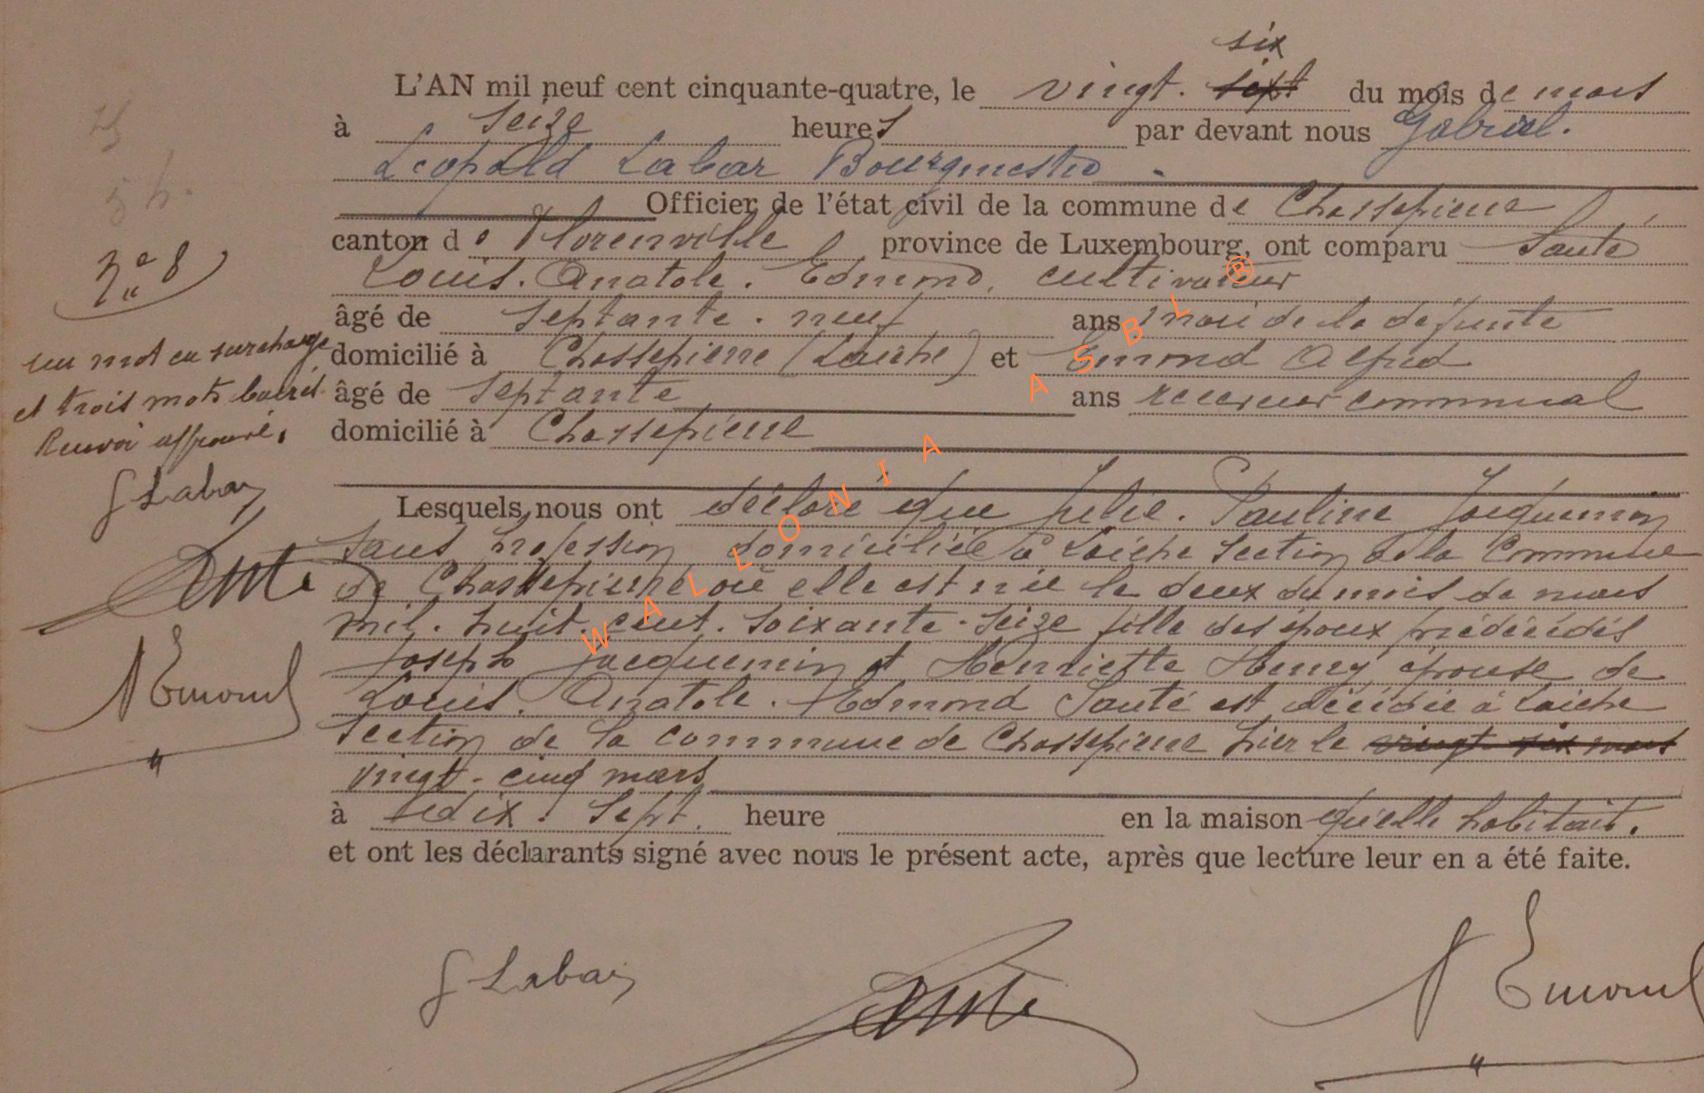 six
L'AN mil neuf cent cinquante-quatre, le vingt. sept du mois de mars
à seize heures par devant nous Gabriel.
Léopold Labar Bourgmestre
Officier de l'état civil de la commune de Chassepierre
canton de Florenville province de Luxembourg, ont comparu Santé
Louis. Anatole. Edmond, cultivateur
âgé de septante. neuf ans mari de la défunte
domicilié à Chassepierre (Laiche) et Emond Alfred
âgé de septante ans receveur communal
domicilié à Chassepierre
Lesquels nous ont déclaré que Julie. Pauline Jacquemin
sans profession domiciliée à Laiche section de la Commune
de Chassepierre où elle est née le deux du mois de mars
mil. huit. cent. soixante. seize fille des époux prédécédés
Joseph Jacquemin et Henriette Henry, épouse de
Louis. Anatole. Edmond Santé est décédée à Laiche
section de la commune de Chassepierre hier le vingt six mars
vingt-cinq mars
à dix. sept. heure en la maison qu'elle habitait.
et ont les déclarants signé avec nous le présent acte, après que lecture leur en a été faite.
N° 8
un mot en surcharge
et trois mots barrés
Renvoi approuvé,
G Labar
Santé
A Emond
G Labar
Santé
A Emond
WALLONIA ASBL ®